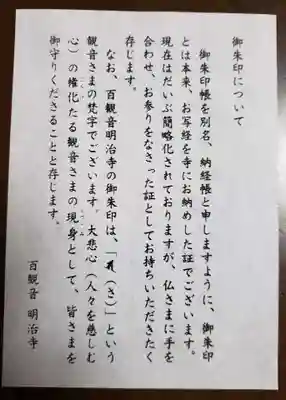 御朱印について
御朱印帳を別名、納経帳と申しますように、御朱印
とは本来、お写経を寺にお納めした証でございます。
現在はだいぶ簡略化されておりますが、仏さまに手を
合わせ、お参りをなさった証としてお持ちいただきたく
存じます。
なお、百観音明治寺の御朱印は、「 （さ）」という
観音さまの梵字でございます。大悲心（人々を慈しむ
心）の権化たる観音さまの現身として、皆さまを
御守りくださることと存じます。
百観音 明治寺